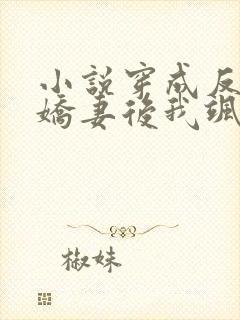 小說穿成反
嬌妻後我颯
椒妹